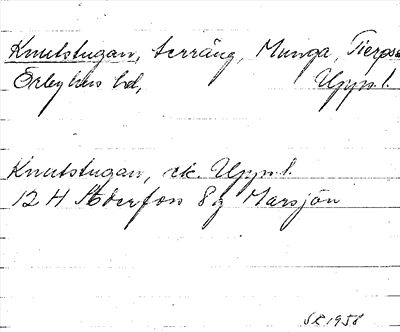 Knutstugan, terräng, Munga, Tierps
Örbyhus hd, Uppl.
Knutstugan, ek. Uppl.
12 H Söderfors 8 g Marsjön
1958